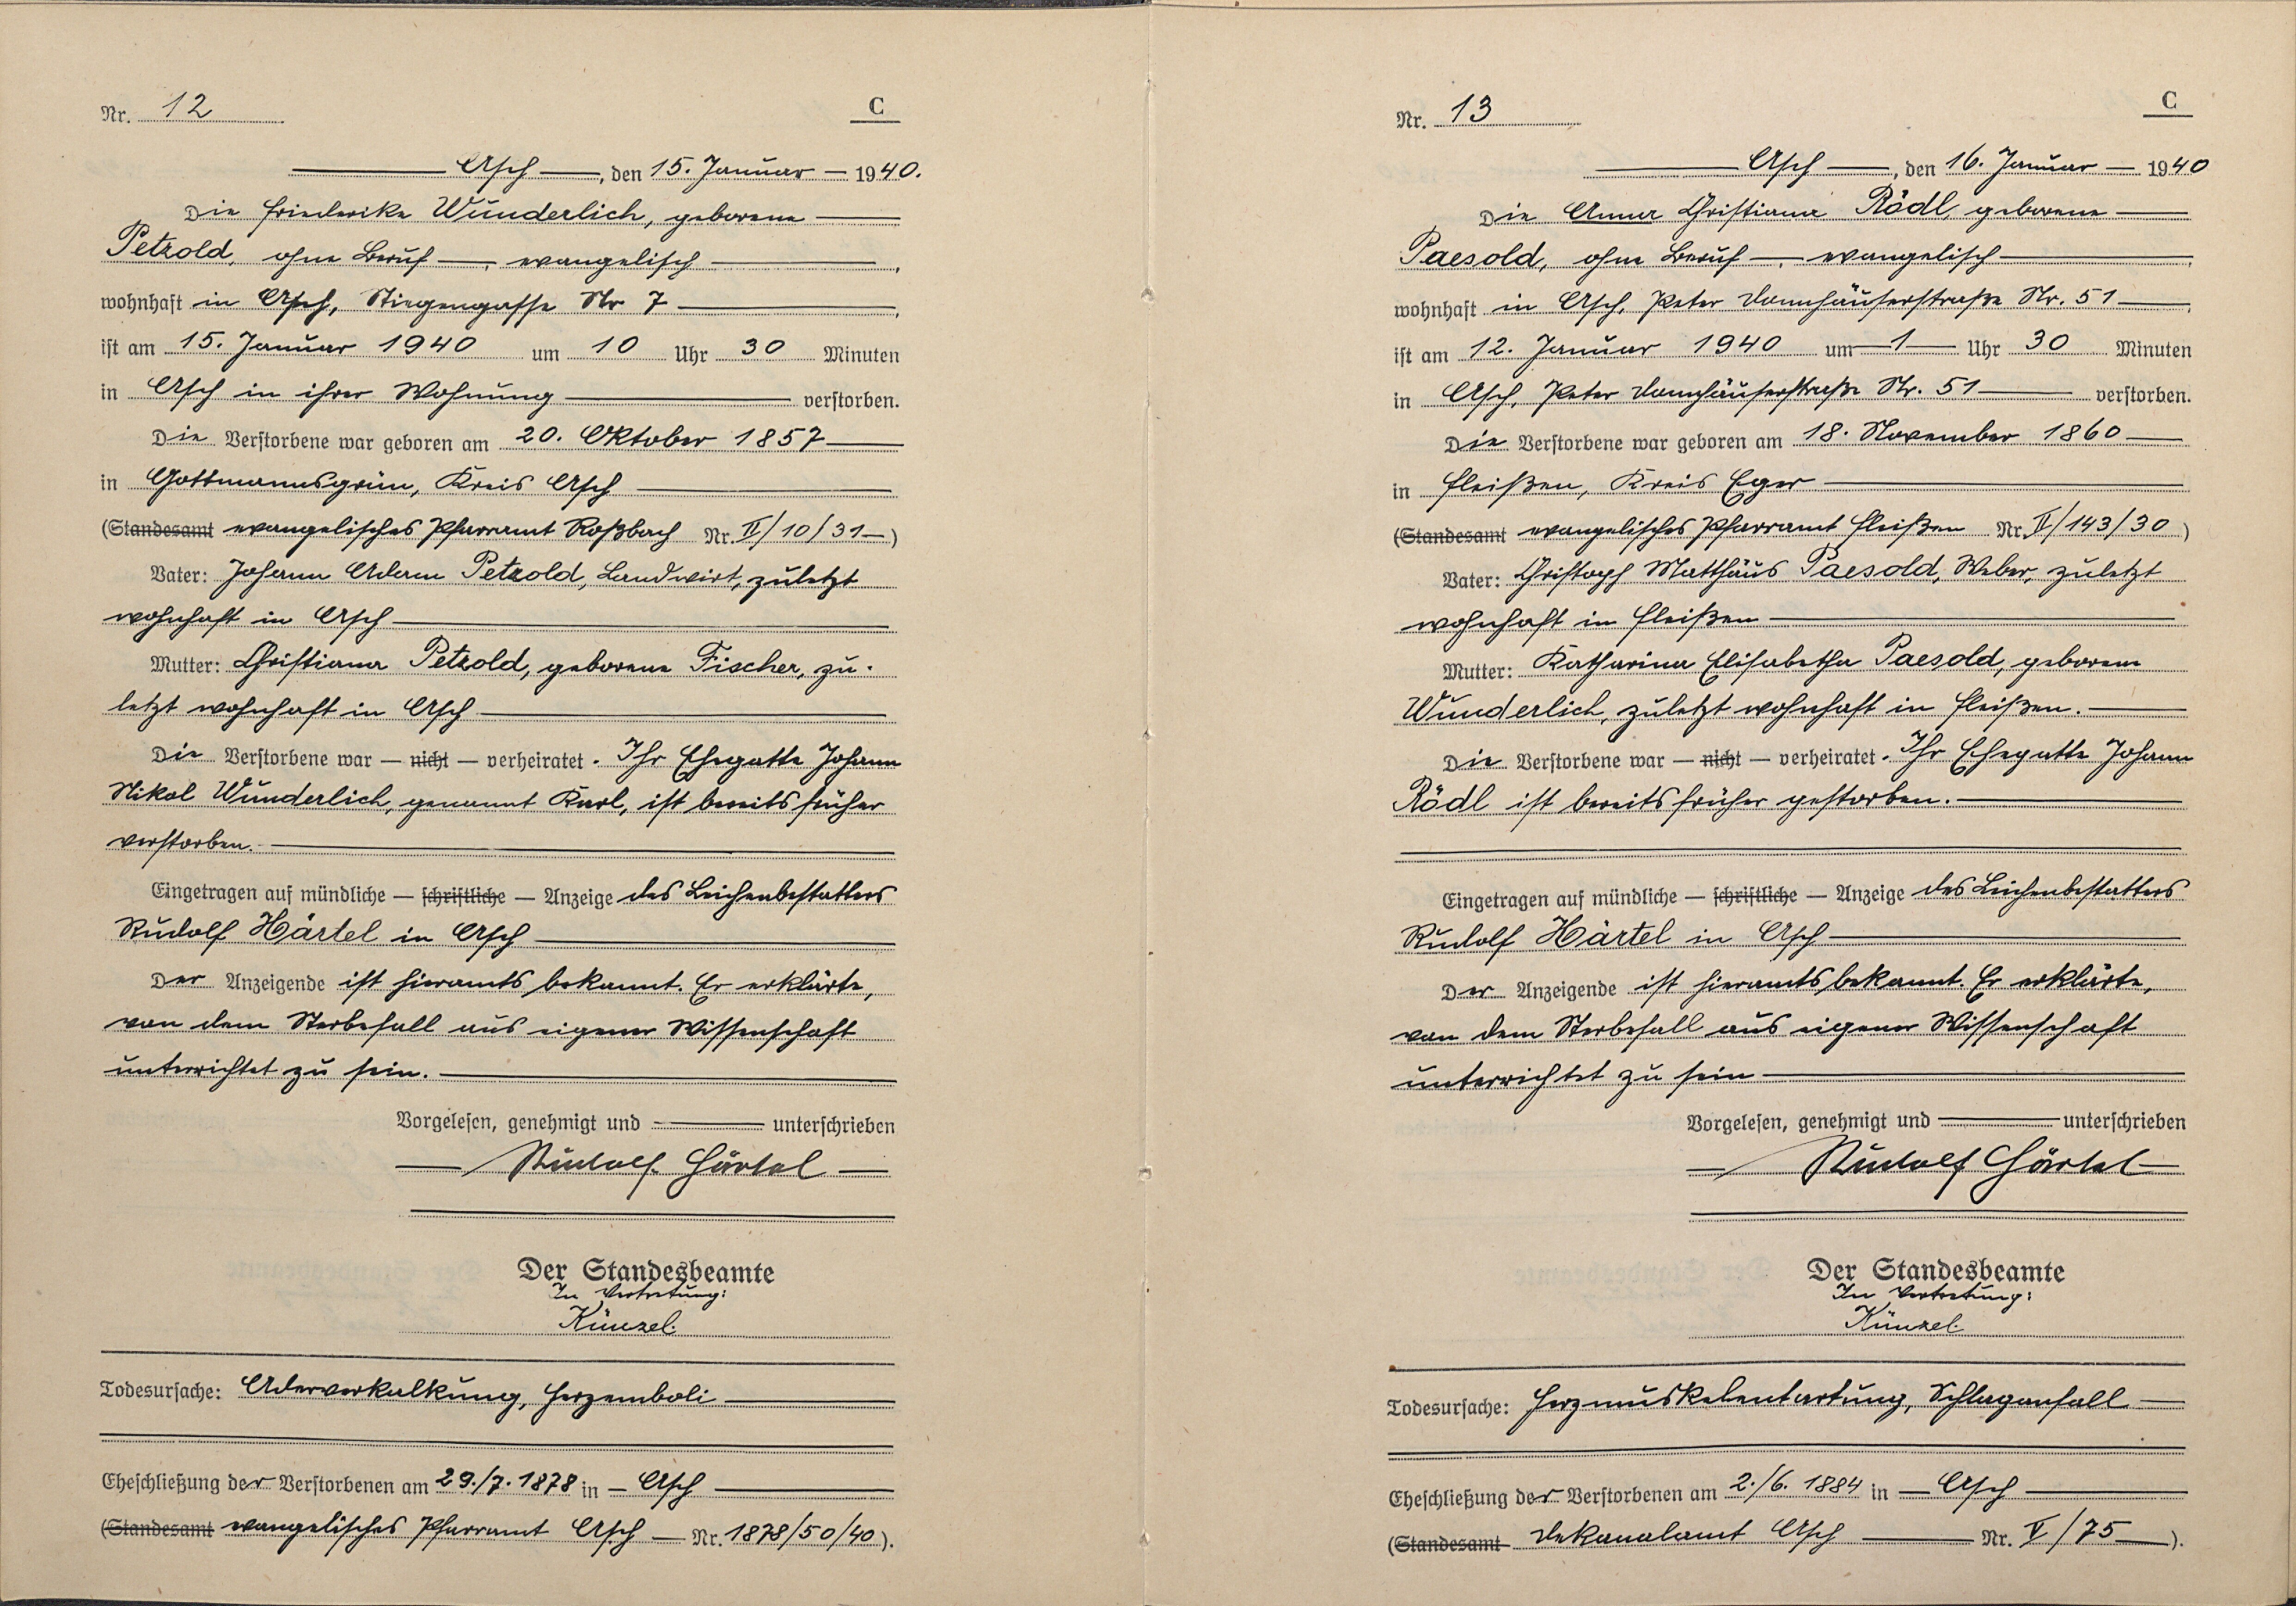 Nr. 12
C
Asch, den 15. Januar 1940.
Die Friederike Wunderlich, geborene
Petzold, ohne Beruf, evangelisch,
wohnhaft in Asch, Stiegengasse Nr 7,
ist am 15. Januar 1940 um 10 Uhr 30 Minuten
in Asch in ihrer Wohnung verstorben.
Die Verstorbene war geboren am 20. Oktober 1857
in Gottmannsgrün, Kreis Asch
(Standesamt evangelisches Pfarramt Roßbach Nr. II/10/31)
Vater: Johann Adam Petzold, Landwirt, zuletzt
wohnhaft in Asch
Mutter: Christiana Petzold, geborene Fischer, zu-
letzt wohnhaft in Asch
Die Verstorbene war — nicht — verheiratet. Ihr Ehegatte Johann
Nikol Wunderlich, genannt Karl, ist bereits früher
verstorben.
Eingetragen auf mündliche — schriftliche — Anzeige des Leichenbestatters
Rudolf Härtel in Asch
Der Anzeigende ist hieramts bekannt. Er erklärte,
von dem Sterbefall aus eigener Wissenschaft
unterrichtet zu sein.
Vorgelesen, genehmigt und unterschrieben
Rudolf Härtel
Der Standesbeamte
In Vertretung:
Künzel.
Todesursache: Aderverkalkung, Herzemboli
Eheschließung der Verstorbenen am 29./7. 1878 in Asch
(Standesamt evangelisches Pfarramt Asch Nr. 1878/50/40).
Nr. 13
C
Asch, den 16. Januar 1940
Die Anna Christiana Rödl, geborene
Paesold, ohne Beruf, evangelisch,
wohnhaft in Asch, Peter Donnhäuserstraße Nr. 51,
ist am 12. Januar 1940 um 1 Uhr 30 Minuten
in Asch, Peter Donnhäuserstraße Nr. 51 verstorben.
Die Verstorbene war geboren am 18. November 1860
in Fleißen, Kreis Eger
(Standesamt evangelisches Pfarramt Fleißen Nr. II/143/30)
Vater: Christoph Matthäus Paesold, Weber, zuletzt
wohnhaft in Fleißen
Mutter: Katharina Elisabetha Paesold, geborene
Wunderlich, zuletzt wohnhaft in Fleißen.
Die Verstorbene war — nicht — verheiratet. Ihr Ehegatte Johann
Rödl ist bereits früher gestorben.
Eingetragen auf mündliche — schriftliche — Anzeige des Leichenbestatters
Rudolf Härtel in Asch
Der Anzeigende ist hieramts bekannt. Er erklärte,
von dem Sterbefall aus eigener Wissenschaft
unterrichtet zu sein
Vorgelesen, genehmigt und unterschrieben
Rudolf Härtel
Der Standesbeamte
In Vertretung:
Künzel.
Todesursache: Herzmuskelentartung, Schlaganfall
Eheschließung der Verstorbenen am 2./6. 1884 in Asch
(Standesamt Dekanalamt Asch Nr. V/75).